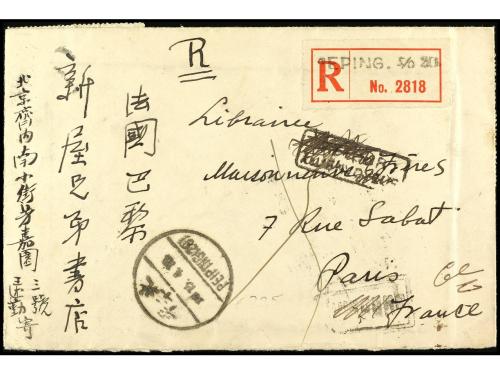 R
PEPING. S/O 20.
R
No. 2818
Librairie
Maisonneuve Frères
7 Rue Sabat
Paris
France
法國巴黎
新屋兄弟書店
北京齊內南小街芳嘉園三號
PEIPING